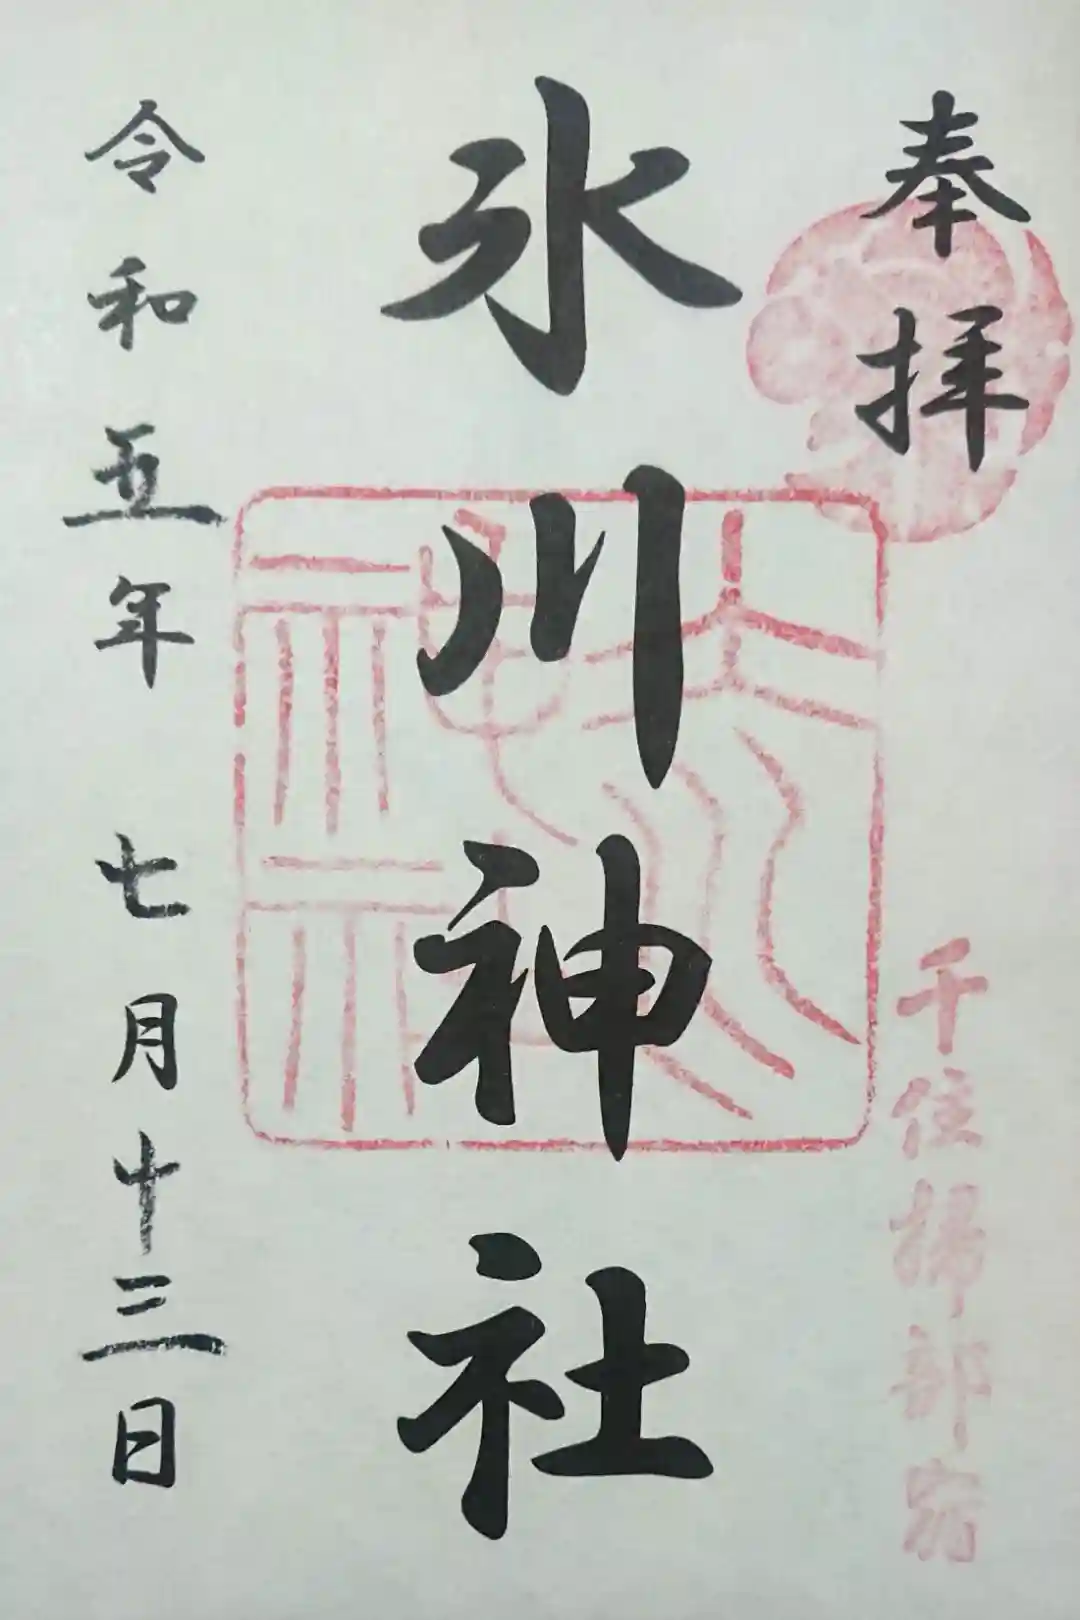 奉拝
千住掃部宿
氷川神社
令和五年 七月十三日